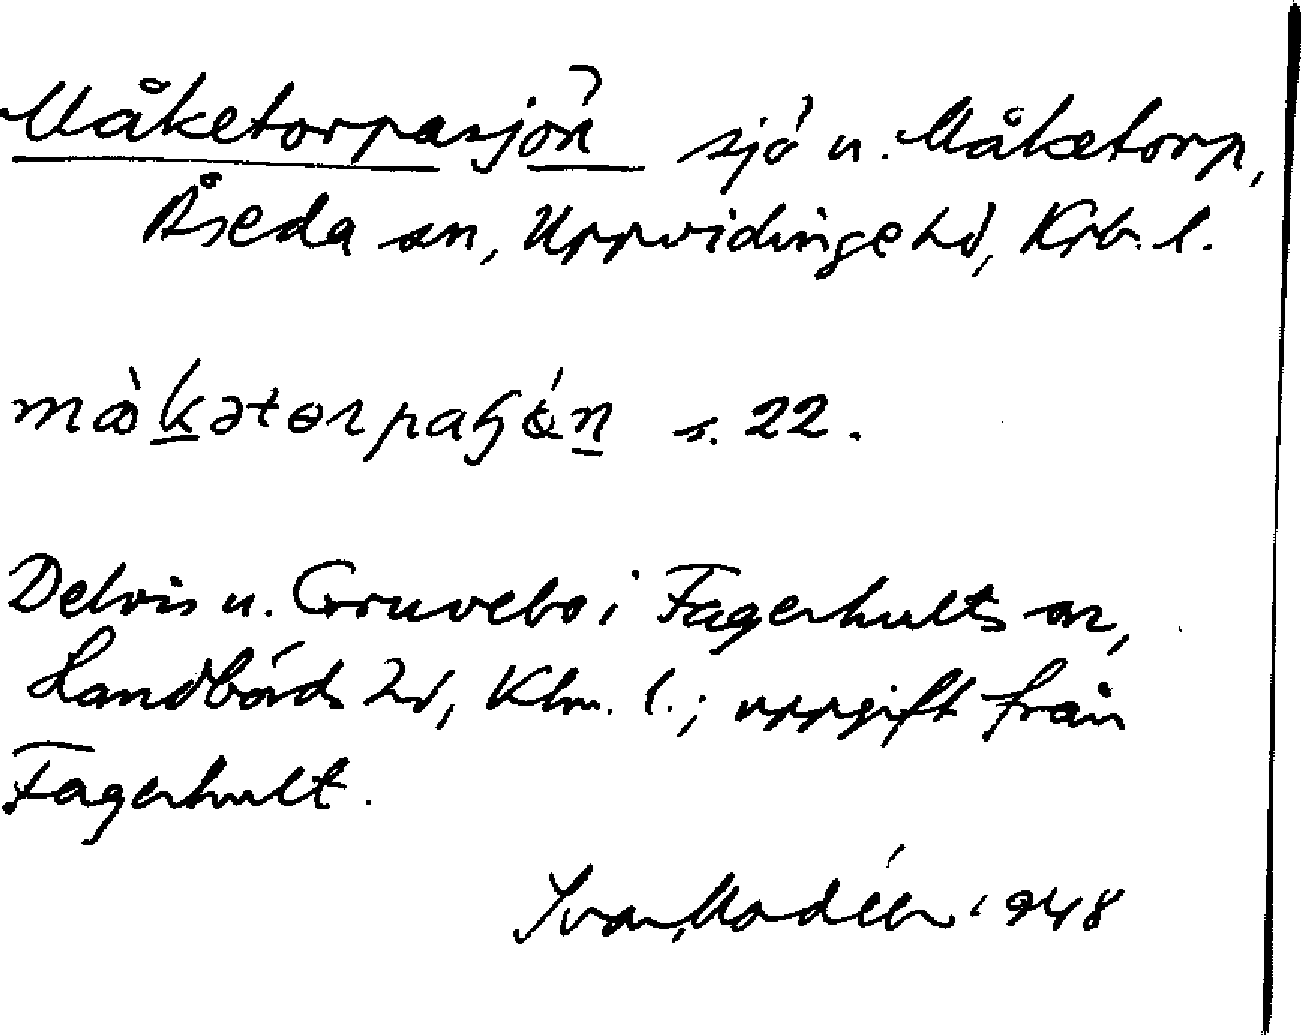 Måketorpasjön sjö u. Måketorp,
Åseda sn, Uppvidinge hd, Krb. l.
s. 22.
Delvis u. Gruvebo i Fagerhults sn,
Handbörds hd, Klm. l.; uppgift från
Fagerhult.
Ivar Modéer 1948